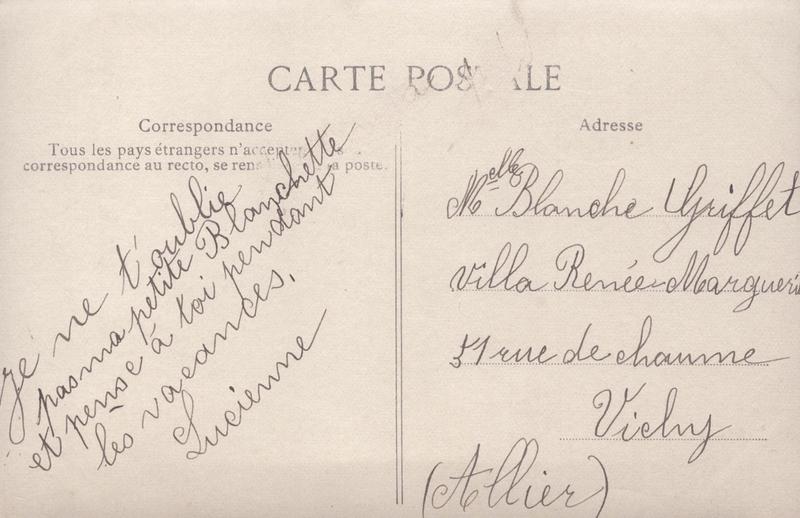 CARTE POSTALE
Correspondance
Tous les pays étrangers n'acceptent
correspondance au recto, se ren la poste.
Je ne t'oublie
pas ma petite Blanchette
et pense à toi pendant
les vacances.
Lucienne
Adresse
Melle Blanche Griffet
villa Renée-Marguerit
51 rue de chaume
Vichy
(Allier)